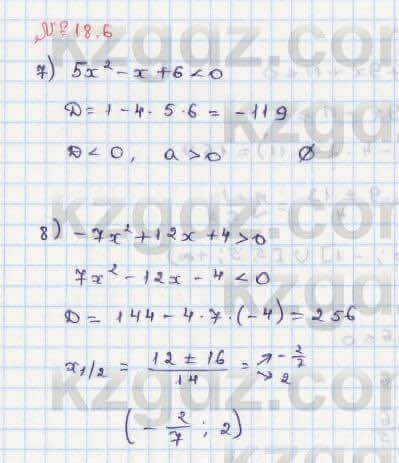 № 18.6
7) 5x² - x + 6 < 0
D = 1 - 4 · 5 · 6 = -119
D < 0, a > 0 ∅
8) -7x² + 12x + 4 > 0
7x² - 12x - 4 < 0
D = 144 - 4 · 7 · (-4) = 256
x₁/₂ = (12 ± 16)/14 = ↗ -2/7 ↘ 2
(-2/7 ; 2)
kzgdz.com